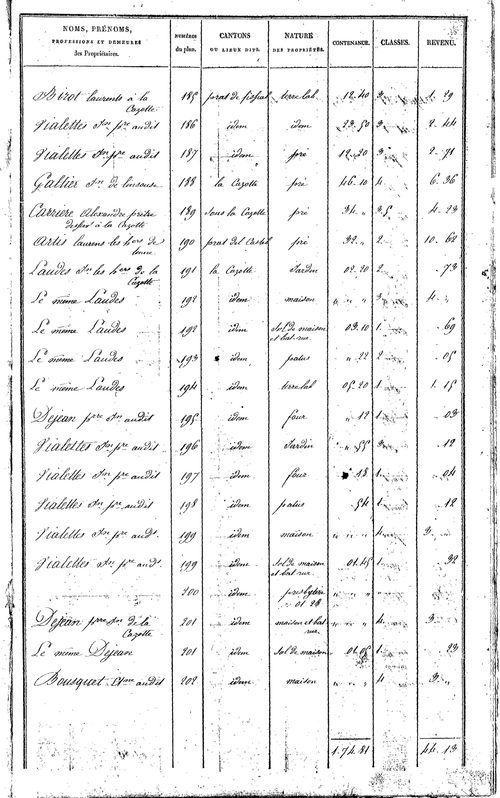 NOMS, PRÉNOMS, PROFESSIONS ET DEMEURES des Propriétaires. NUMÉROS du plan. CANTONS OU LIEUX DITS. NATURE DES PROPRIÉTÉS. CONTENANCE. CLASSES. REVENU.
Birot laurents à la Cazotte 185 prat de terre lab. 12.40 3 1. 29
Vialettes Jn pre audit 186 idem idem 23.50 3 2. 44
Vialettes Jn pre audit 187 idem pré 12.20 3 2. 71
Galtier Jn de 188 la Cazotte pré 46.10 4 6. 36
Carriere Alexandre prêtre à la Cazotte 189 Sous la Cazotte pré 34. „ 4. 23
Artis laurens les hers de 190 prat del Castel pré 32. „ 2 10. 62
Laudes Jn les hers de la Cazotte 191 la Cazotte Jardin 02.20 2 . 73
Le même Laudes 192 idem maison „ „ „ 3 4. „
Le même Laudes 192 idem Sol de maison et bat. rur. 03.10 1 . 69
Le même Laudes 193 idem patus „ 22 2 . 05
Le même Laudes 194 idem terre lab 05.20 1 1. 15
Dejean pre Jn audit 195 idem four „ 12 1 . 03
Vialettes Jn pre audit 196 idem Jardin „ 55 3 . 12
Vialettes Jn pre audit 197 idem four . 18 1 . 04
Vialettes Jn pre audit 198 idem patus . 54 1 . 12
Vialettes Jn pre audt. 199 idem maison „ „ „ 4 3. „
Vialettes Jn pre audt. 199 idem Sol de maison et bat. rur. 01.45 1 . 32
200 idem presbytère „ 01 28 „ „ „ „
Dejean pre Jn de la Cazotte 201 idem maison et bat rur. „ „ „ 4 3. „
Le même Dejean 201 idem Sol de maison 01.05 1 . 23
Bousquet audit 202 idem maison „ „ „ 4 3. „
1.74.81 44. 13